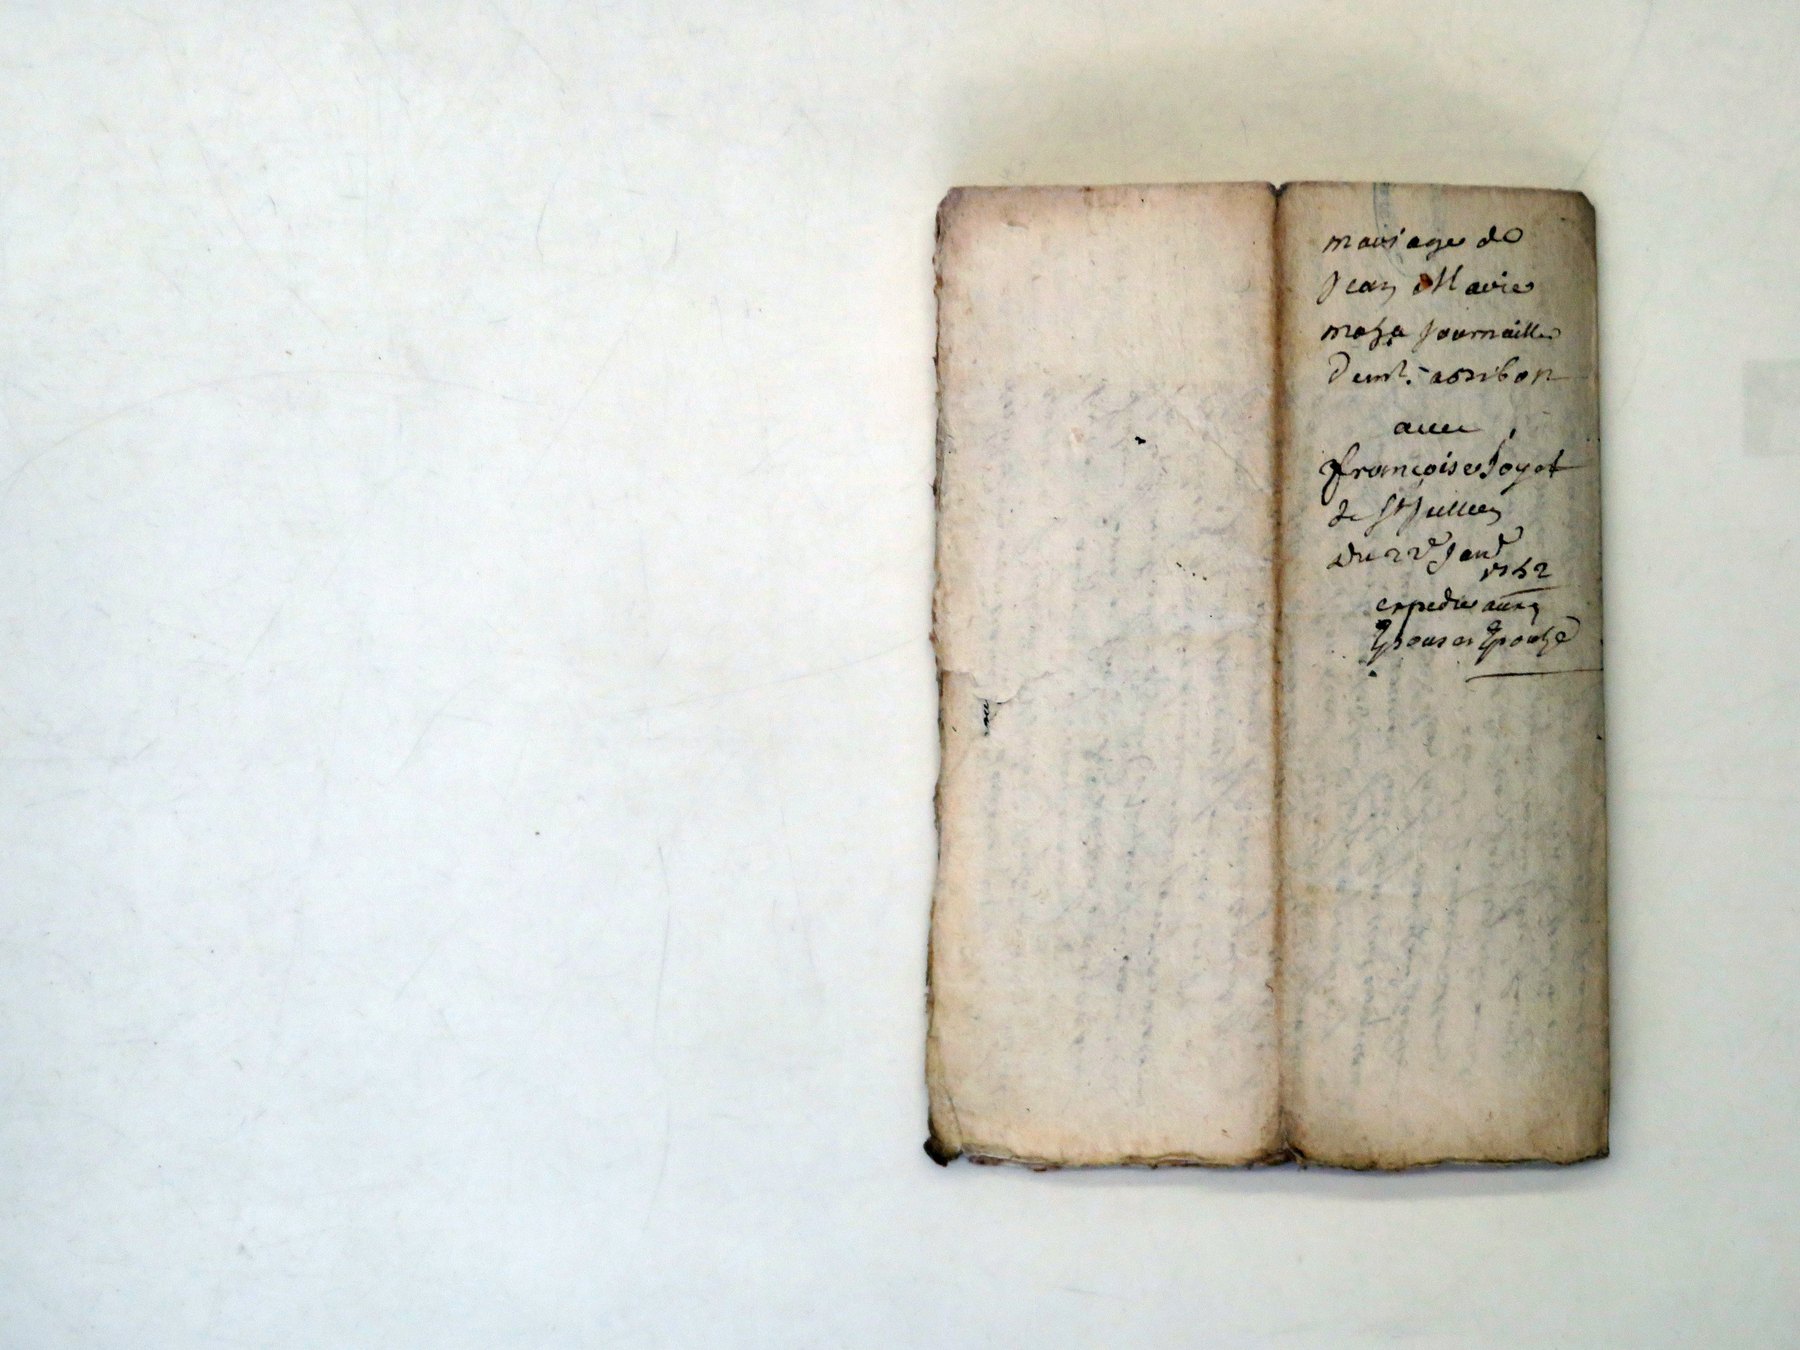 mariage de
Jean Marie
journaillier
Demt. a
avec
françoise Joyet
de St Jullien
Du 22e Janr
1762
expedie aux
Epoux et Epouse